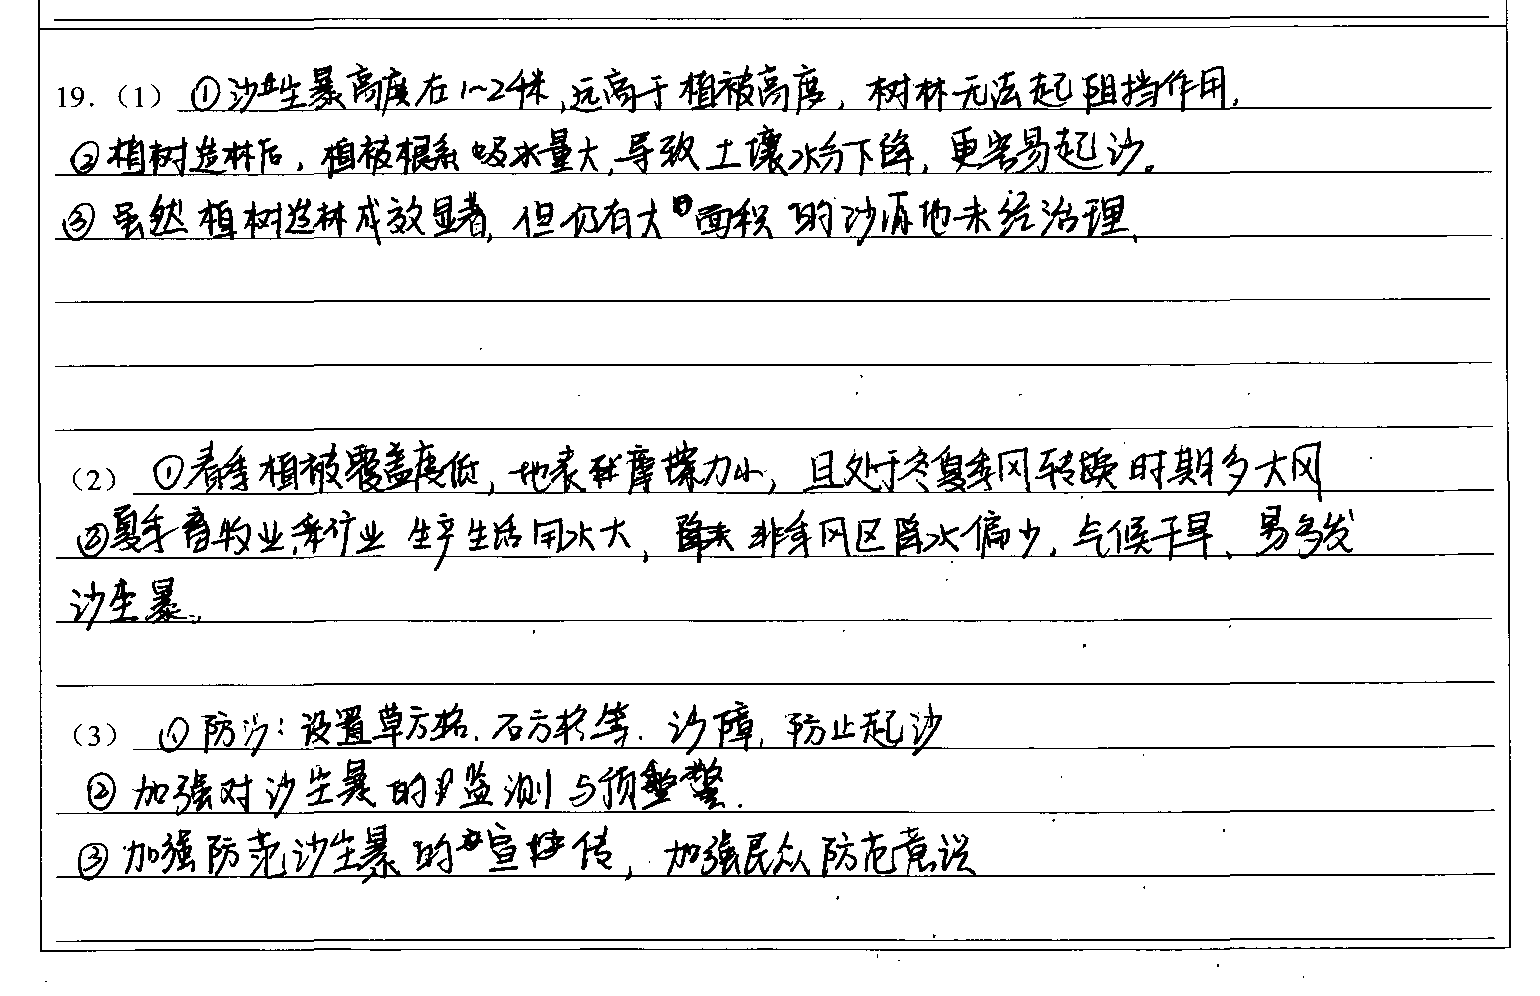 19.（1）①沙尘暴高度在1~2千米,远高于植被高度，树林无法起阻挡作用.
②植树造林后，植被根系吸水量大,导致土壤水分下降，更容易起沙。
③虽然植树造林成效显著，但仍有大面积的沙源地未经治理、
（2）①春季植被覆盖度低，地表摩擦力小，且处于冬夏季风转换时期多大风
②夏季畜牧业、采矿业生产生活用水大，非季风区降水偏少，气候干旱、易多发
沙尘暴。
（3）①防沙：设置草方格、石方格等.沙障，防止起沙
②加强对沙尘暴的监测与预警.
③加强防范沙尘暴的宣传，加强民众防范意识